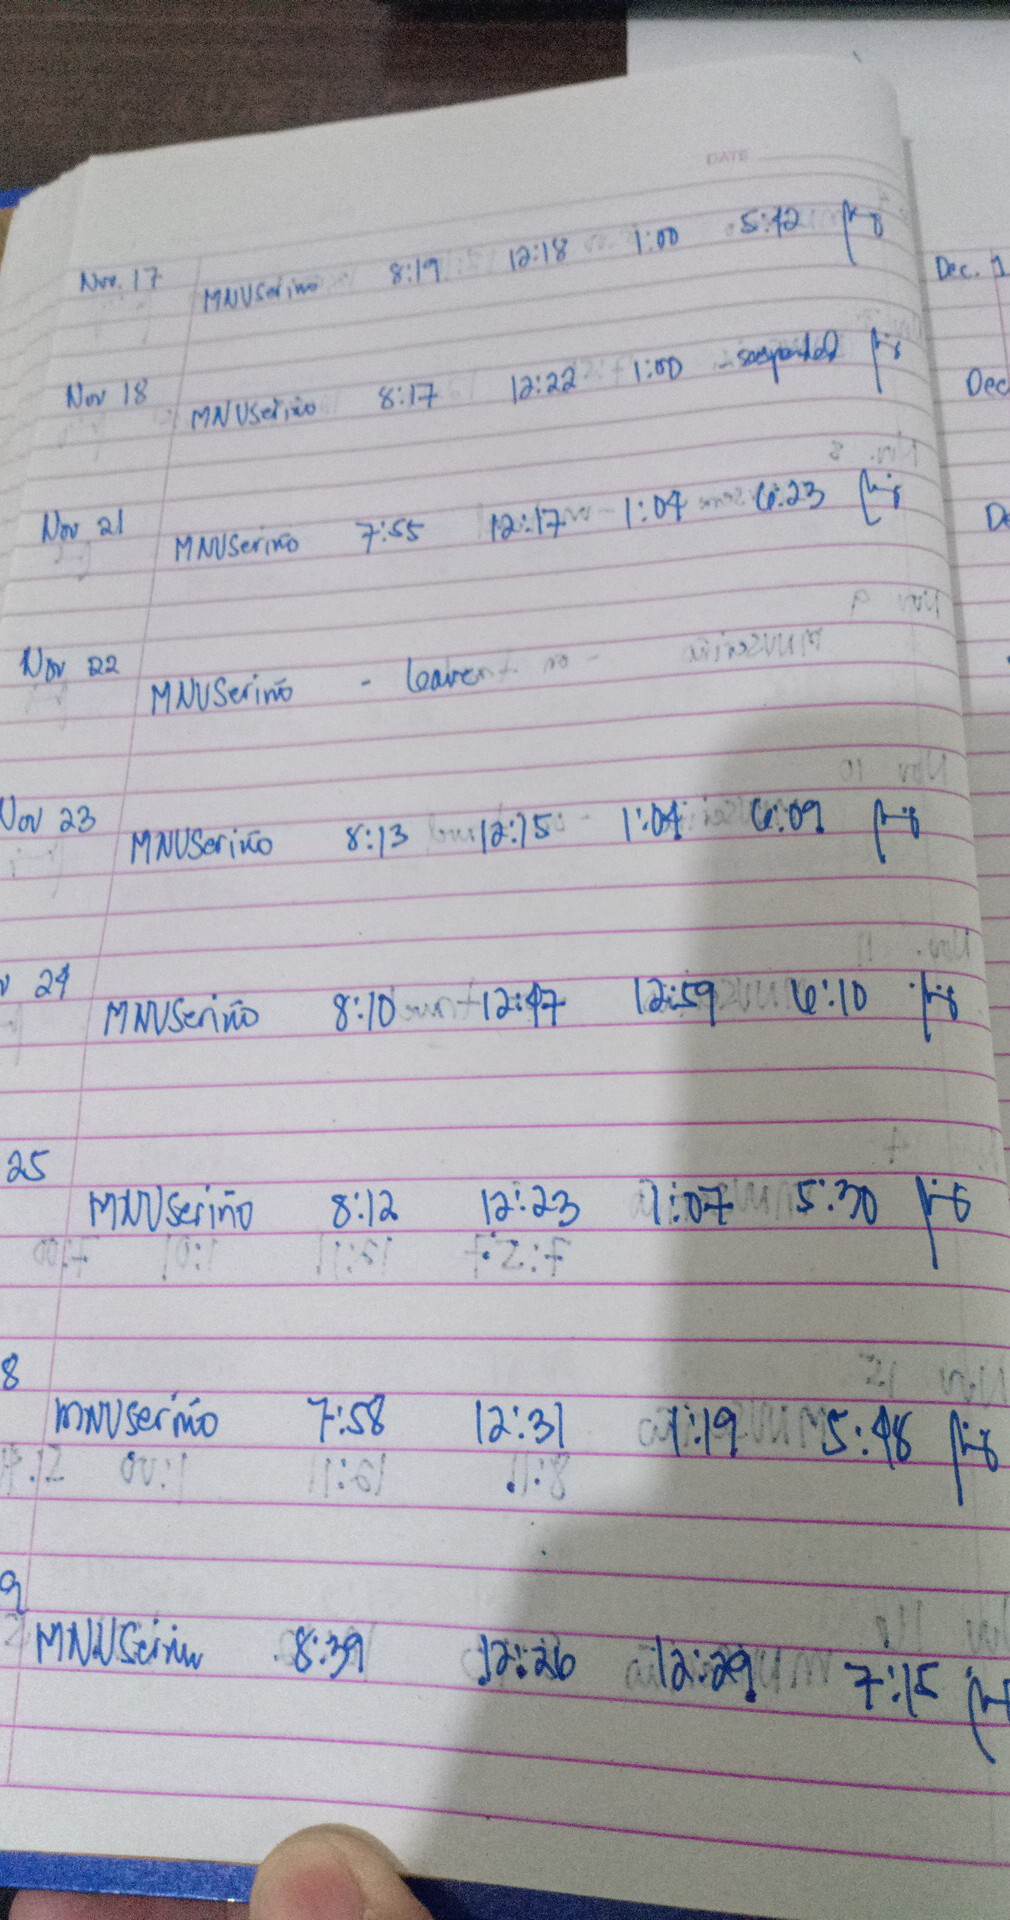 DATE
Nov. 17 MNUSeriño 8:19 12:18 1:00 5:42
Dec. 1
Nov 18 MNUSeriño 8:17 12:22 1:00 - suspended
Dec
Nov 21 MNUSeriño 7:55 12:17 1:04 6:23
De
Nov 22 MNUSeriño - leave
Nov 23 MNUSeriño 8:13 12:15 1:04 6:09
v 24 MNUSeriño 8:10 12:47 12:59 6:10
25 MNUSeriño 8:12 12:23 1:07 5:30
8 MNUSeriño 7:58 12:31 1:19 5:48
9 MNUSeriño 8:39 12:26 12:29 7:15